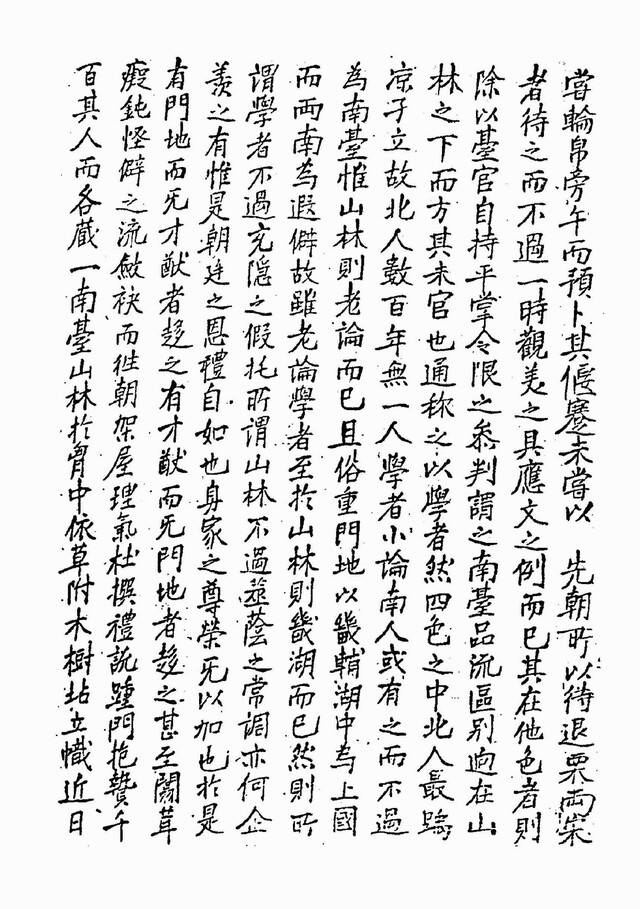 當輪帛旁午而預卜其偃蹇未嘗以 先朝所以待退栗兩宋
者待之而不過一時觀美之具應文之例而已其在他色者則
除以臺官自持平掌令限之叅判謂之南臺品流區別逈在山
林之下而方其未官也通称之以學者然四色之中北人最踽
凉孑立故北人數百年無一人學者小論南人或有之而不過
為南臺惟山林則老論而已且俗重門地以畿輔湖中為上國
而兩南為遐僻故雖老論學者至扵山林則畿湖而已然則所
謂學者不過充隠之假托所謂山林不過蔭之常調亦何企
羡之有惟是朝廷之恩禮自如也身家之尊榮旡以加也扵是
有門地而旡才猷者趍之有才猷而旡門地者趍之甚至闒茸
癡鈍怪僻之流斂袂而徃朝架屋理氣杜撰禮說踵門抱贄千
百其人而各蔵一南臺山林扵胷中依草附木樹坫立幟近日